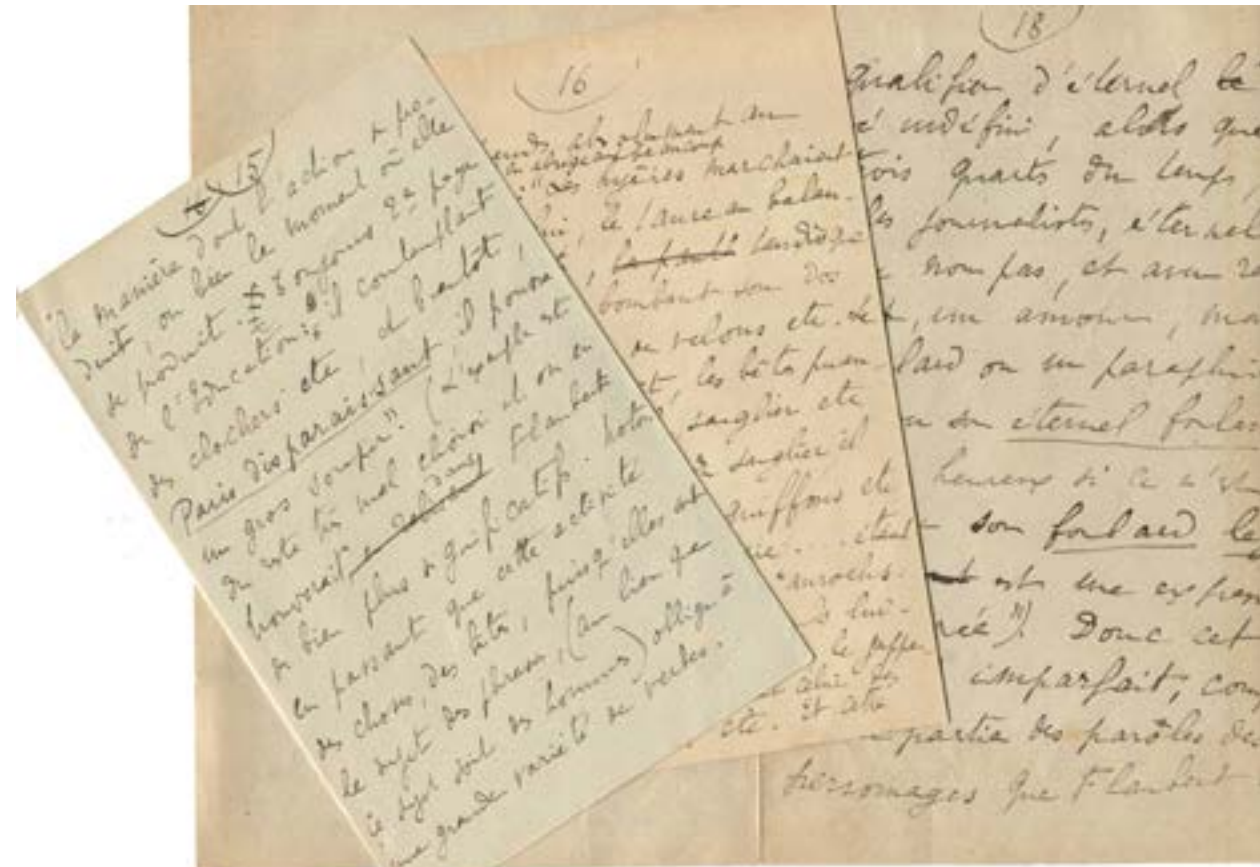 15
la manière dont l'action se pro-
duit, ou bien le moment où elle
se produit. Toujours 2e page
de l'Education: "il contemplait
des clochers etc, et bientôt,
Paris disparaissant il poussa
un gros soupir." (L'exemple est
du reste très mal choisi et on en
trouverait dans Flaubert
de bien plus significatifs. Notons
en passant que cette activité
des choses, des bêtes, puisqu'elles sont
le sujet des phrases, (au lieu que
ce sujet soit des hommes) oblige à
une grande variété de verbes.
16
absolument au
en abrégeant beaucoup
"Les hyènes marchaient
lui, le taureau balan-
tandis que
bombant son dos
de velours etc.
les bêtes puan-
sanglier etc
sanglier il
griffons etc
était
aurochs.
lui-
le
celui des
etc. Et cette
18
qualifier d'éternel
é indéfini, alors que
trois quarts du temps,
les journalistes, éternel
non pas, et avec
un amour, mais
lard ou un paraplui
son éternel foulard
heureux si ce n'est
son foulard le
est une expres
rée"). Donc cet
imparfait,
partie des paroles de
personnages que Flaubert